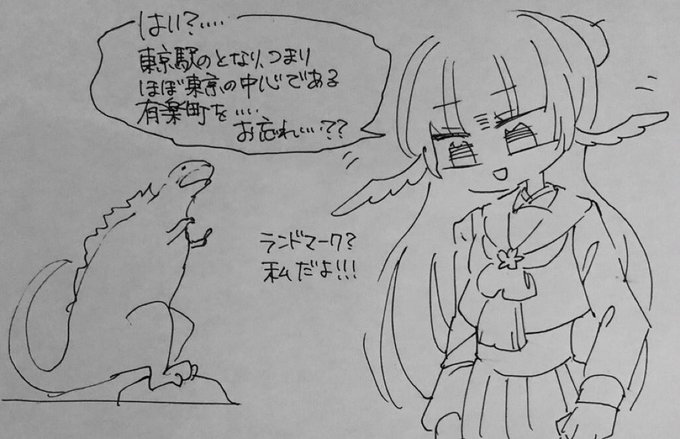 はい?‥‥
東京駅のとなり、つまり
ほぼ東京の中心である
有楽町を‥‥
お忘れ‥‥??
ランドマーク?
私だよ!!!